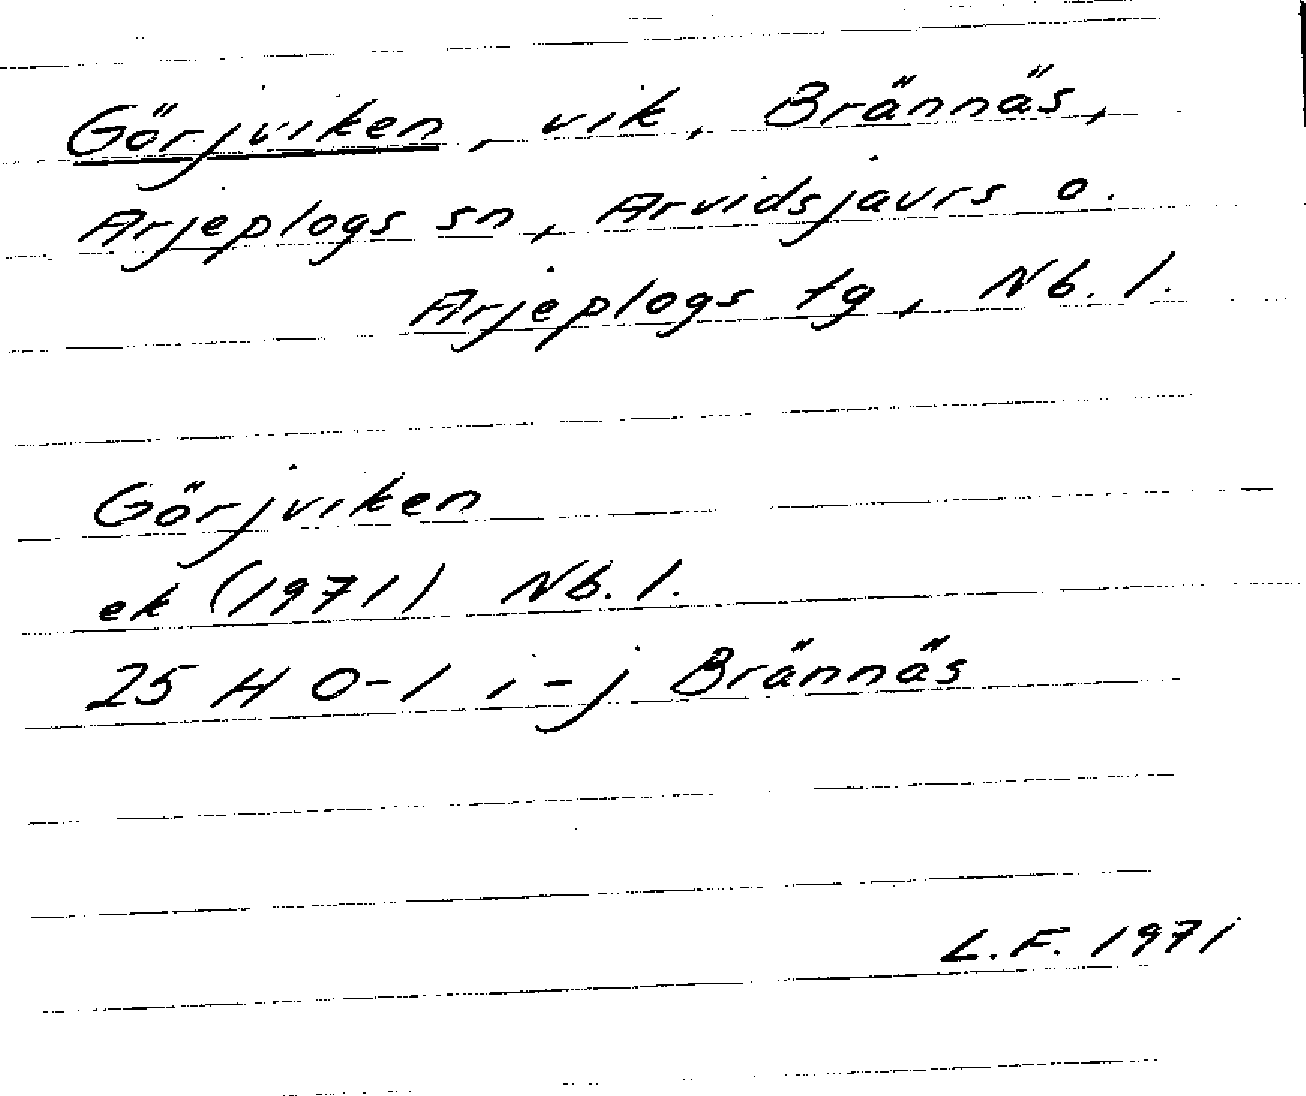 Görjviken, vik, Brännäs,
Arjeplogs sn, Arvidsjaurs o.
Arjeplogs tg, Nb. l.
Görjviken
ek (1971) Nb. l.
25 H 0-1 i-j Brännäs
L.F. 1971